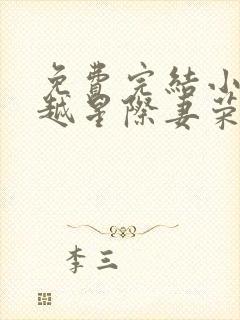 免費完結小
越星際妻榮
李三